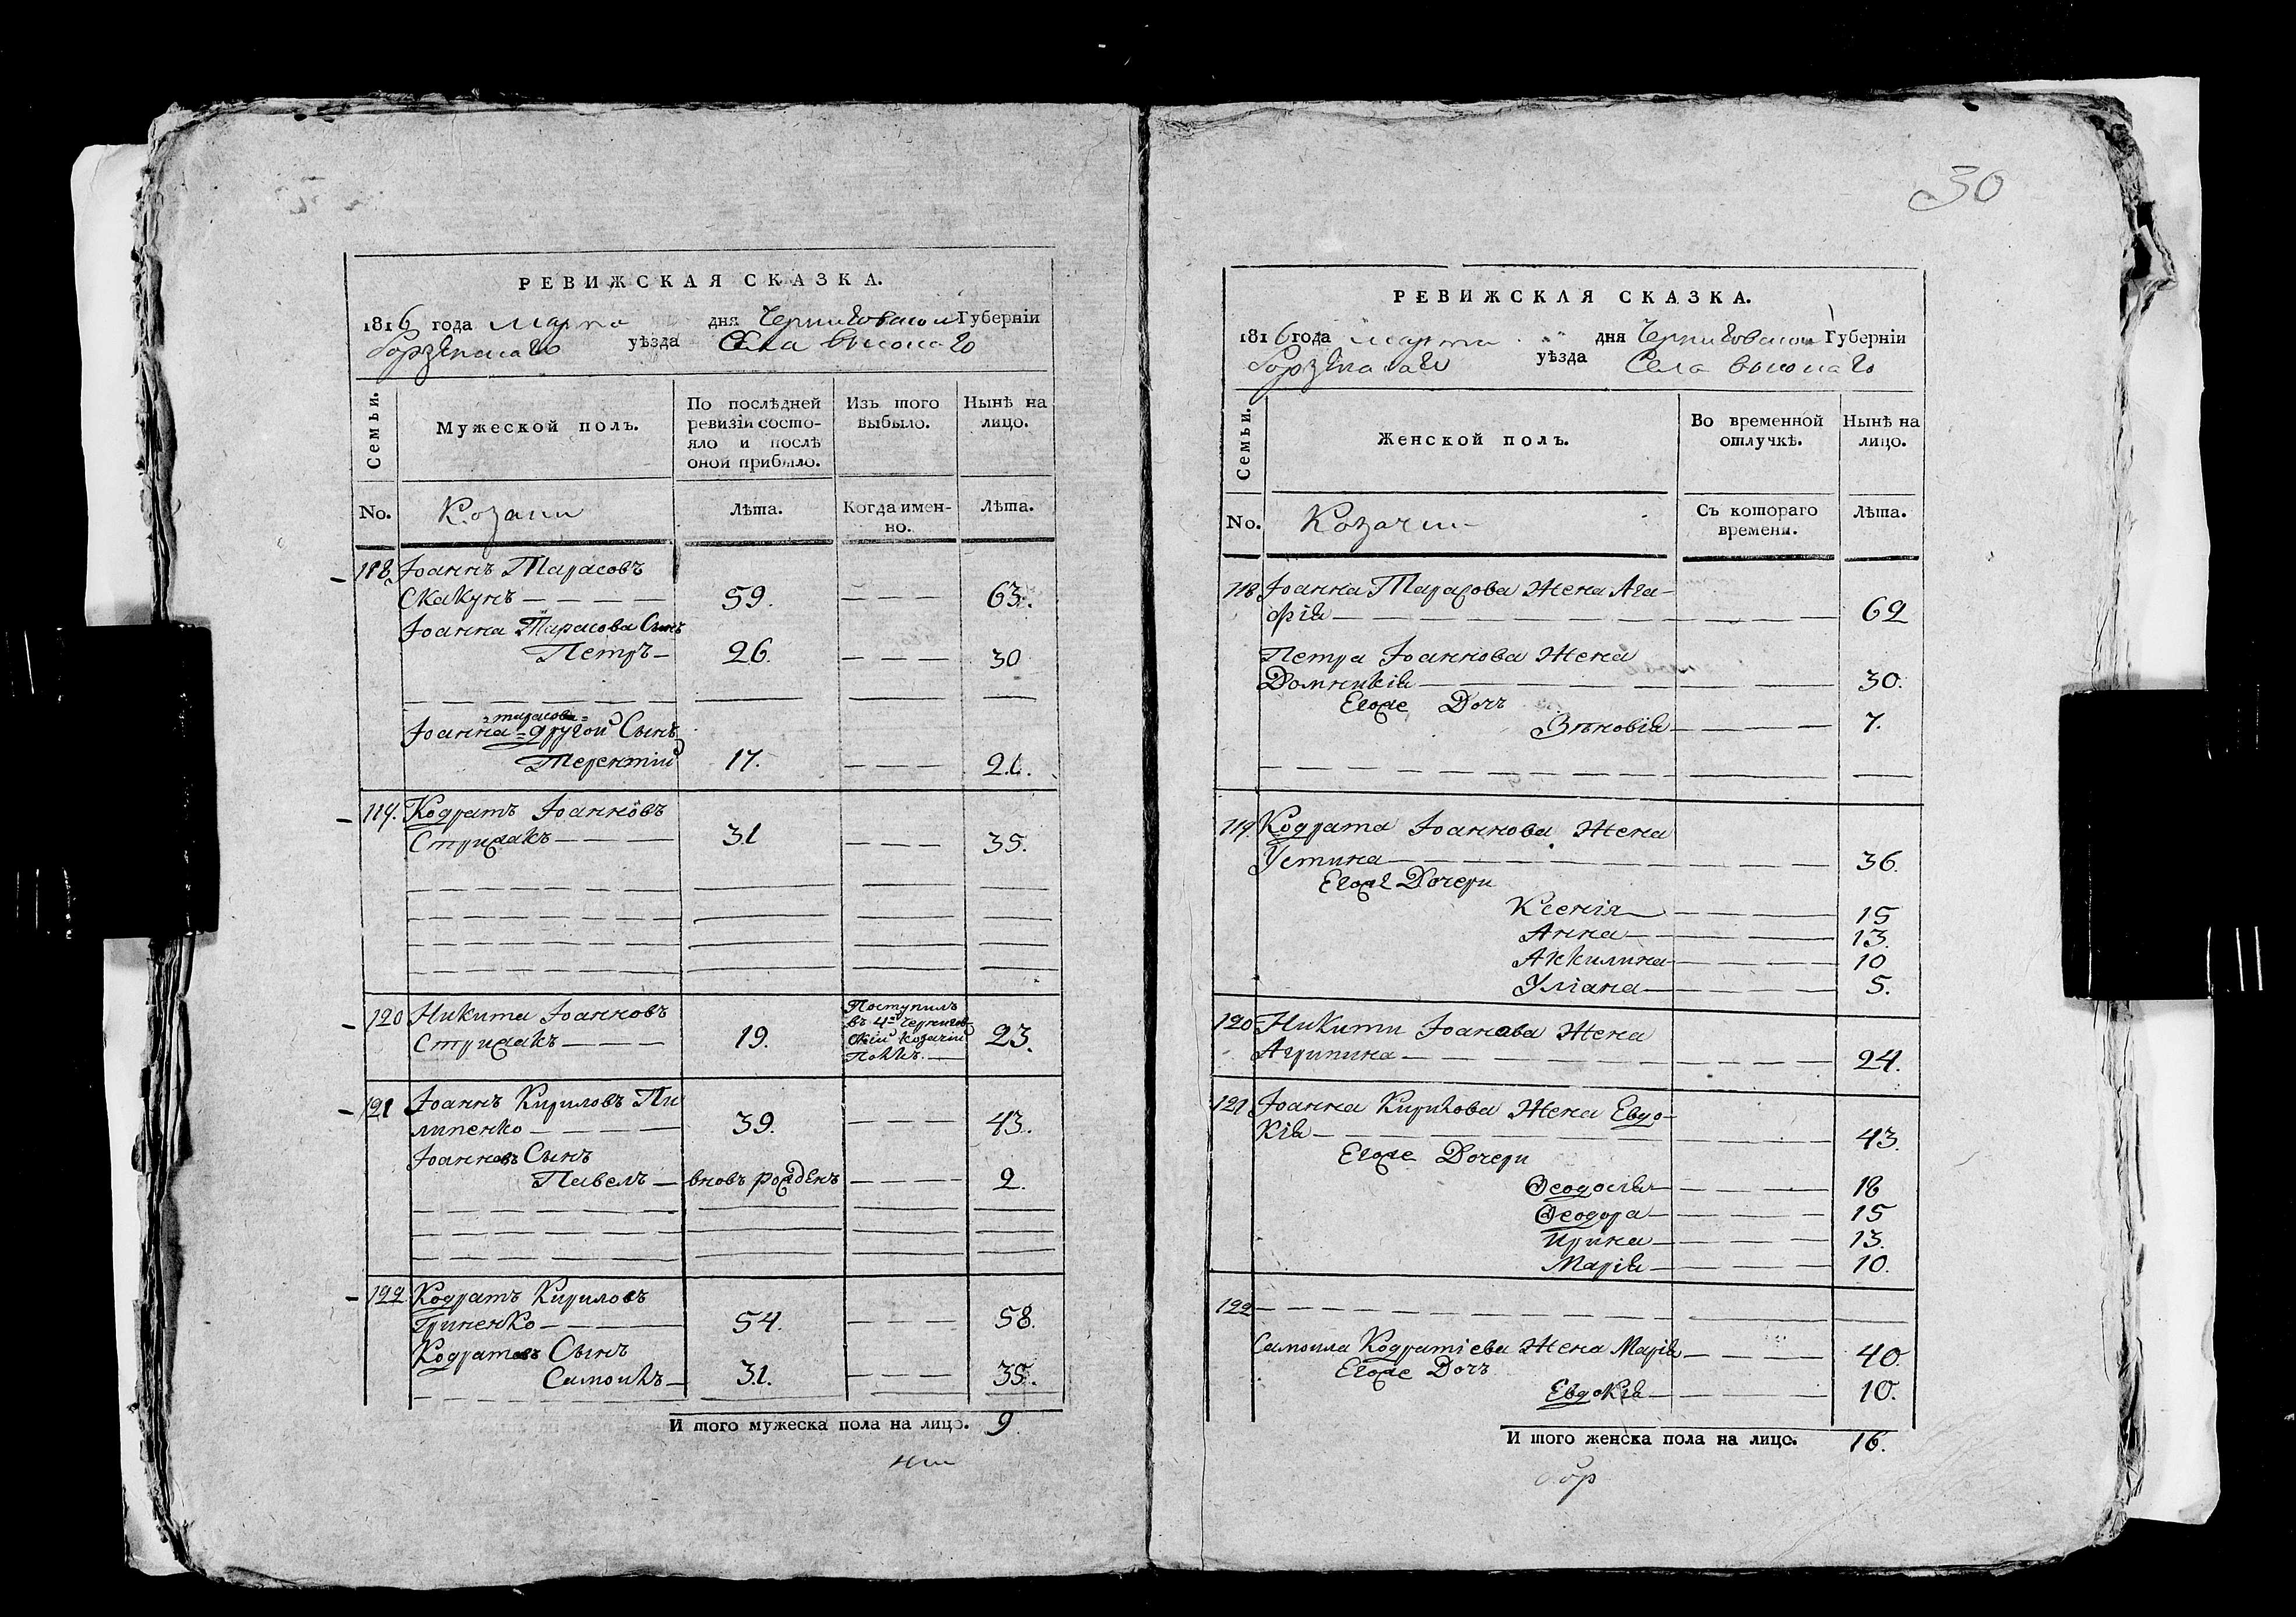 РЕВИЖСКАЯ СКАЗКА.
1816 года Марта дня Черниговской Губерніи
Борзенскаго уѣзда Села Высокаго
Семьи.
Мужеской полъ.
По послѣдней ревизіи состо-
яло и послѣ
оной прибыло.
Изъ того
выбыло.
Нынѣ на
лицо.
No.
Козаки
Лѣта.
Когда имен-
но.
Лѣта.
118. Іоаннъ Тарасовъ
Скакунъ 59. 63.
Іоанна Тарасова Сынъ
Петръ 26. 30
Тарасова
Іоанна другой Сынъ
Терентій 17. 21.
119. Кодратъ Іоанновъ
Стрижакъ 31 35.
120 Никита Іоанновъ
Стрижакъ 19. 23.
Поступилъ
въ 4й Чернигов-
скій козачій
Полкъ.
121 Іоаннъ Кириловъ Пи
липенко 39. 43.
Іоанновъ Сынъ
Павелъ вновь рожденъ 2.
122 Кодратъ Кириловъ
Гриненко 54. 58.
Кодратовъ Сынъ
Самоилъ 31. 35.
И того мужеска пола на лицо. 9
30
РЕВИЖСКАЯ СКАЗКА.
1816 года Марта дня Черниговской Губерніи
Борзенскаго уѣзда Села Высокаго
Семьи.
Женской полъ.
Во временной
отлучкѣ.
Нынѣ на
лицо.
No.
Козачки
Съ котораго
времени.
Лѣта.
118 Іоанна Тарасова Жена Ага-
фія 62
Петра Іоаннова Жена
Домникія 30.
Егоже Дочъ
Зѣновія 7.
119. Кодрата Іоаннова Жена
Устина 36.
Егоже Дочери
Ксенія 15
Анна 13.
Аккилина 10
Уліана 5.
120 Никити Іоанова Жена
Агрипина 24.
121 Іоанна Кирилова Жена Евдо-
кія 43
Егоже Дочери
Ѳеодосія 18
Ѳеодора 15
Ирина 13.
Марія 10.
122
Самоила Кодратіева Жена Марія 40
Егоже Дочъ
Евдокія 10.
И того женска пола на лицо. 16.